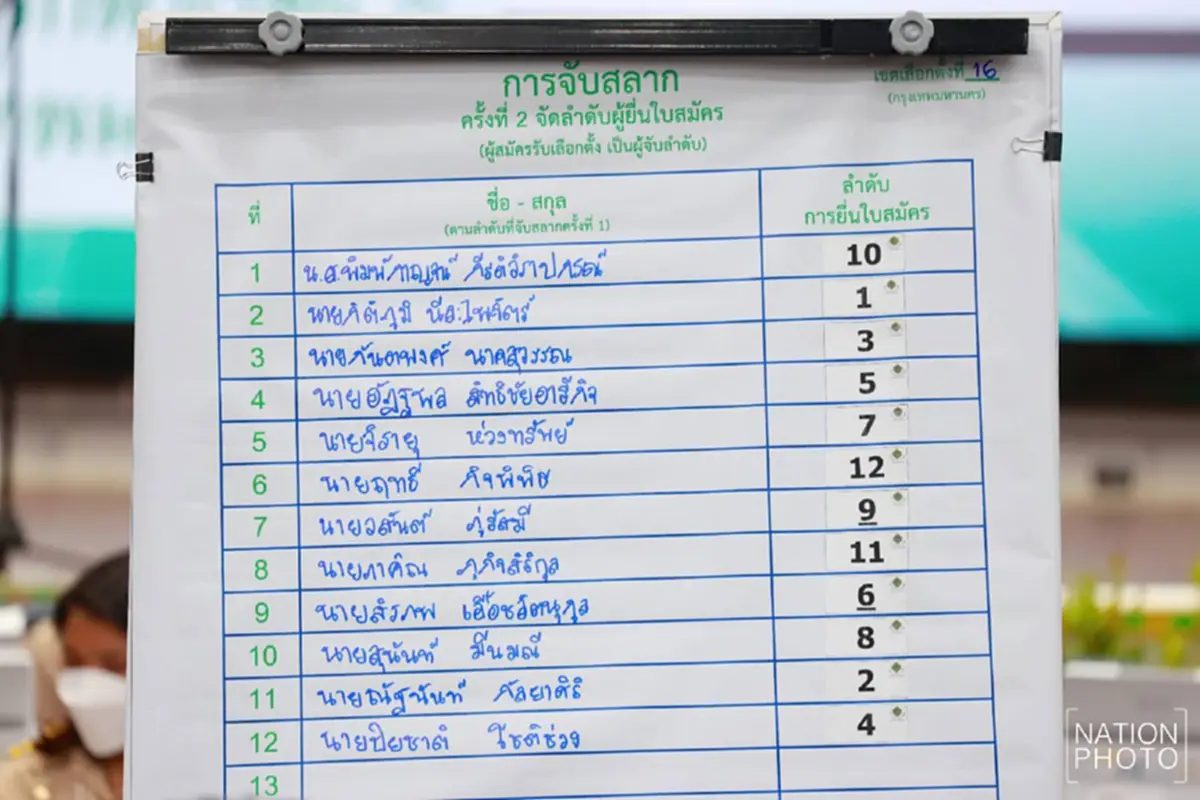 การจับสลาก
เขตเลือกตั้งที่ 16
ครั้งที่ 2 จัดลำดับผู้ยื่นใบสมัคร
(กรุงเทพมหานคร)
(ผู้สมัครรับเลือกตั้ง เป็นผู้จับลำดับ)
ที่ ชื่อ - สกุล ลำดับ
(ตามลำดับที่จับสลากครั้งที่ 1) การยื่นใบสมัคร
1 น.ส.พิมพ์กาญจน์ กีรติวิราปกรณ์ 10
2 นายกิตติภูมิ นีละไพจิตร์ 1
3 นายกันตพงศ์ นาคสุวรรณ 3
4 นายอัฏฐพล สิทธิชัยอารีกิจ 5
5 นายจิรายุ ห่วงทรัพย์ 7
6 นายฤทธิ์ กิจพิพิธ 12
7 นายวสันต์ ภู่รัศมี 9
8 นายภาคิณ ภูกิจสิริกุล 11
9 นายสิรภพ 6
10 นายสุนันท์ มีนมณี 8
11 นายณัฐนันท์ กัลยาศิริ 2
12 นายปิยชาติ โชติช่วง 4
13
NATION
PHOTO